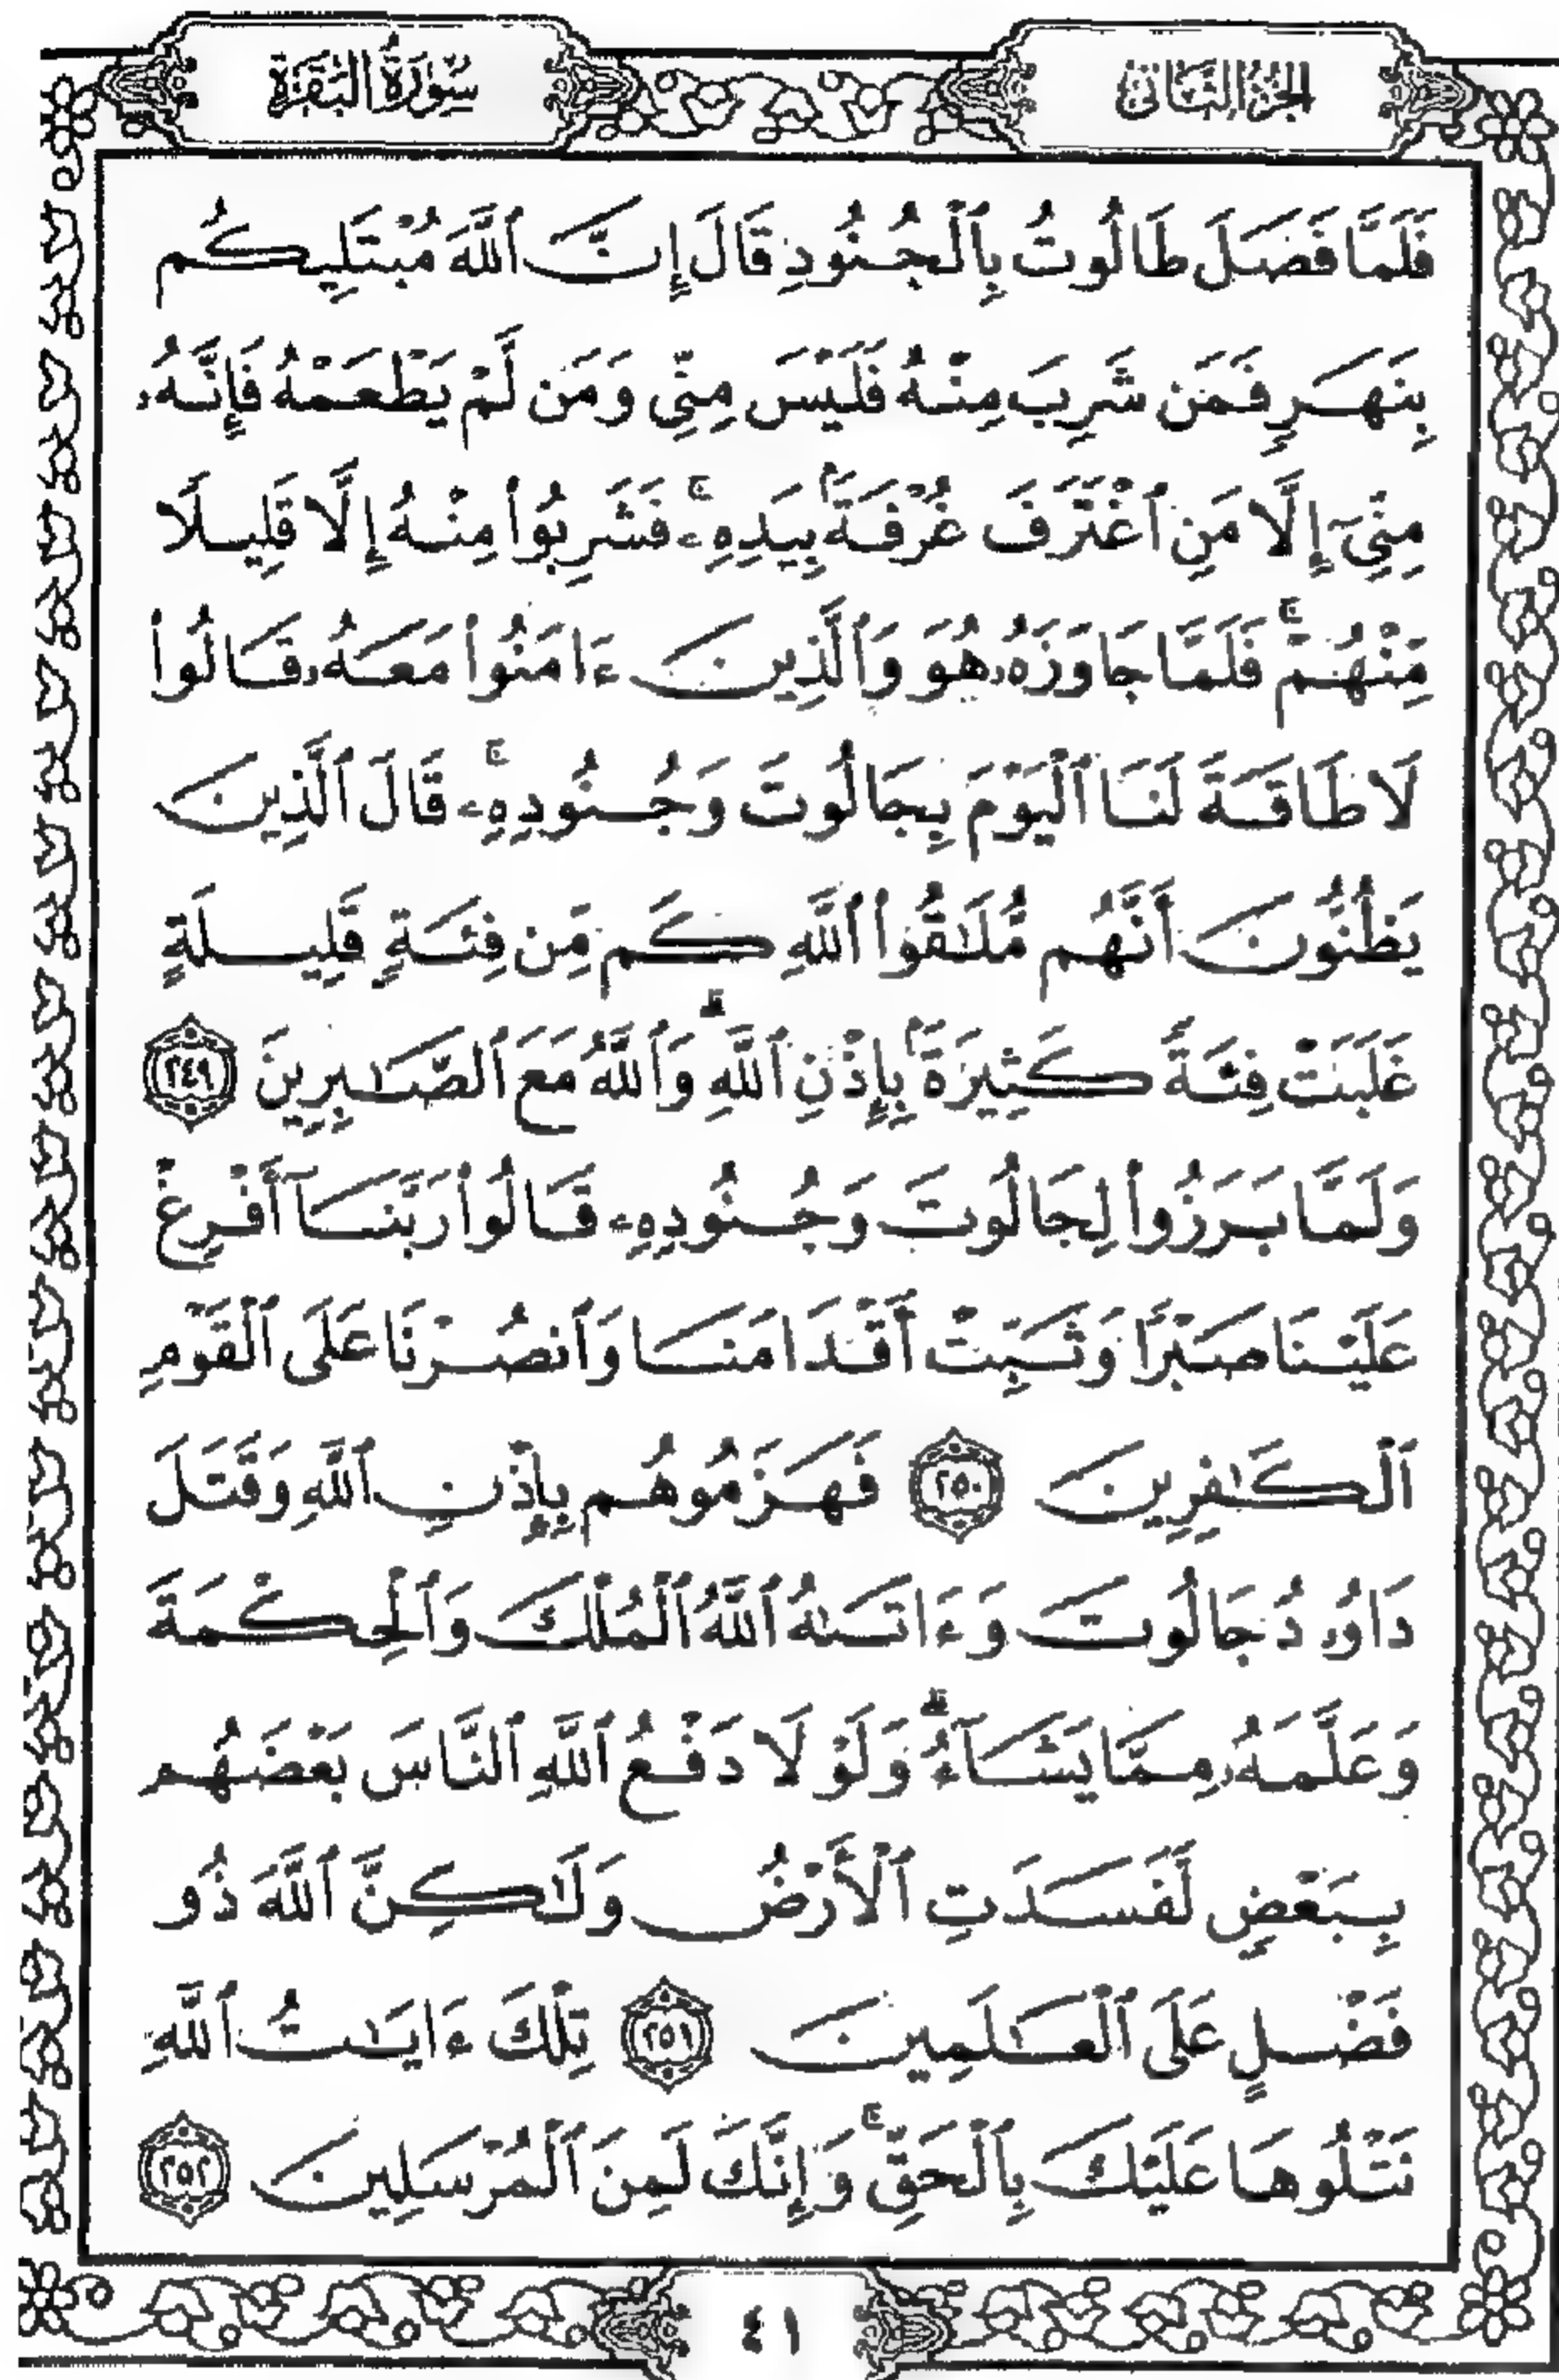 الجزء الثاني
سورة البقرة
فَلَمَّا فَصَلَ طَالُوتُ بِٱلْجُنُودِ قَالَ إِنَّ ٱللَّهَ مُبْتَلِيكُم
بِنَهَرٍ فَمَن شَرِبَ مِنْهُ فَلَيْسَ مِنِّي وَمَن لَّمْ يَطْعَمْهُ فَإِنَّهُۥ
مِنِّىٓ إِلَّا مَنِ ٱغْتَرَفَ غُرْفَةًۢ بِيَدِهِۦۚ فَشَرِبُوا۟ مِنْهُ إِلَّا قَلِيلًا
مِّنْهُمْۚ فَلَمَّا جَاوَزَهُۥ هُوَ وَٱلَّذِينَ ءَامَنُوا۟ مَعَهُۥ قَالُوا۟
لَا طَاقَةَ لَنَا ٱلْيَوْمَ بِجَالُوتَ وَجُنُودِهِۦۚ قَالَ ٱلَّذِينَ
يَظُنُّونَ أَنَّهُم مُّلَٰقُوا۟ ٱللَّهِ كَم مِّن فِئَةٍ قَلِيلَةٍ
غَلَبَتْ فِئَةً كَثِيرَةًۢ بِإِذْنِ ٱللَّهِۗ وَٱللَّهُ مَعَ ٱلصَّٰبِرِينَ ٢٤٩
وَلَمَّا بَرَزُوا۟ لِجَالُوتَ وَجُنُودِهِۦ قَالُوا۟ رَبَّنَآ أَفْرِغْ
عَلَيْنَا صَبْرًا وَثَبِّتْ أَقْدَامَنَا وَٱنصُرْنَا عَلَى ٱلْقَوْمِ
ٱلْكَٰفِرِينَ ٢٥٠ فَهَزَمُوهُم بِإِذْنِ ٱللَّهِ وَقَتَلَ
دَاوُۥدُ جَالُوتَ وَءَاتَىٰهُ ٱللَّهُ ٱلْمُلْكَ وَٱلْحِكْمَةَ
وَعَلَّمَهُۥ مِمَّا يَشَآءُۗ وَلَوْلَا دَفْعُ ٱللَّهِ ٱلنَّاسَ بَعْضَهُم
بِبَعْضٍ لَّفَسَدَتِ ٱلْأَرْضُ وَلَٰكِنَّ ٱللَّهَ ذُو
فَضْلٍ عَلَى ٱلْعَٰلَمِينَ ٢٥١ تِلْكَ ءَايَٰتُ ٱللَّهِ
نَتْلُوهَا عَلَيْكَ بِٱلْحَقِّۚ وَإِنَّكَ لَمِنَ ٱلْمُرْسَلِينَ ٢٥٢
٤١